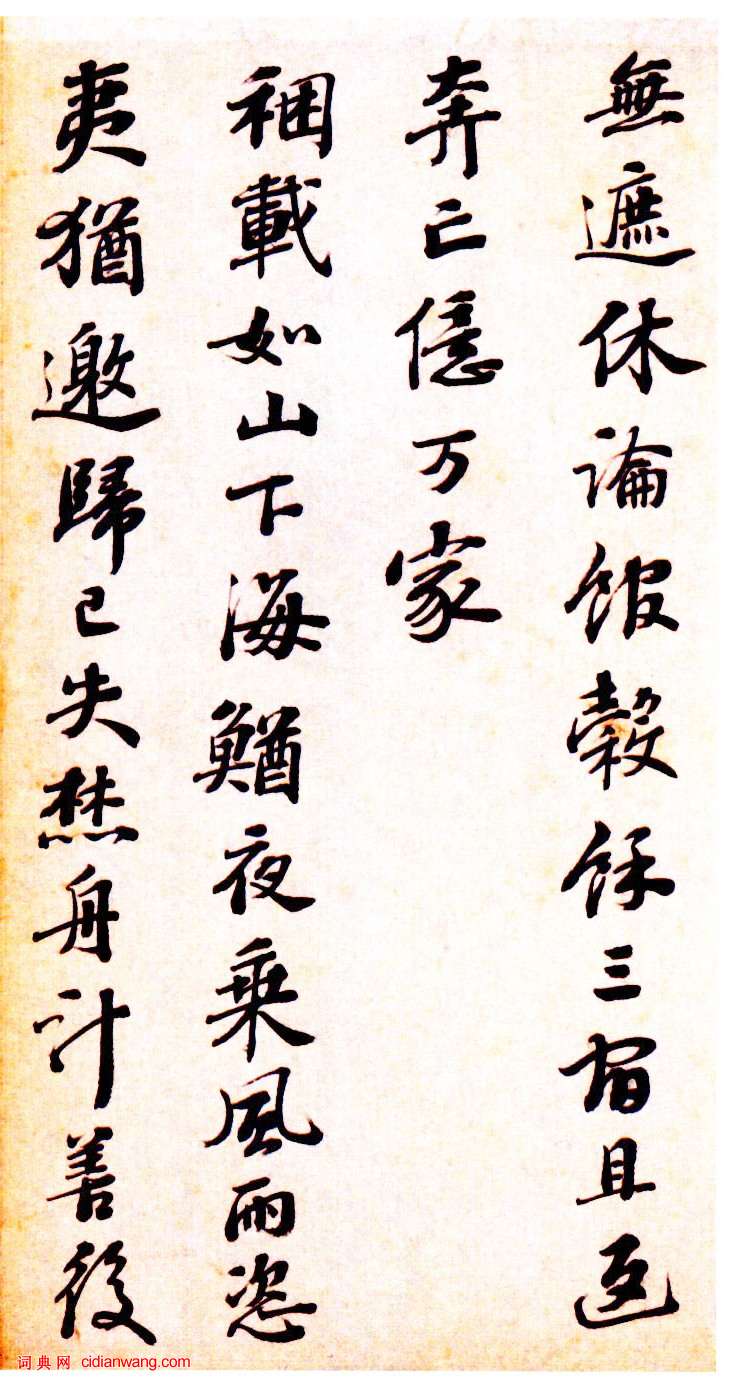 無遮休論館穀餘三宿且返
奔亡億万家
稇載如山下海鰌夜乘風雨恣
夷猶邀歸已失焚舟計善後
词典网 cidianwang.com